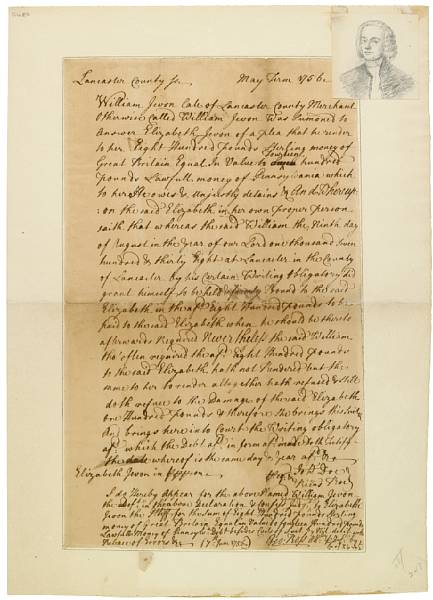 Lancaster County Ss. May Term 1756
William Jevon late of Lancaster County Merchant
Otherwise Called William Jevon Was Sumoned to
Answer Elizabeth Jevon of a plea that he render
to her Eight Hundred pounds Sterling money of
Great Britain Equal In Value to fourteen hundred
pounds Lawfull money of Pennsylvania which
to her He owes & unjustly detains & And Whereup
:on the said Elizabeth in her own proper person
saith that whereas the said William the Ninth day
of August in the Year of our Lord one thousand Seven
hundred & thirty Eight at Lancaster in the County
of Lancaster by his Certain Writing Obligatory did
grant himself to be held & firmly Bound to the said
Elizabeth in the afd. Eight Hundred pounds to be
paid to the said Elizabeth when he should be thereto
afterwards Required Neverthelefs the said William
tho' often required the afd. Eight Hundred Pounds
to the said Elizabeth hath not Rendered but the
same to her to render alltogether hath refused & Still
doth refuse to the Damage of the said Elizabeth
One Hundred Pounds & therefore She brings this Suit
And brings here into Court the Writing obligatory
afd. which the Debt afd. in form afd. made doth Testify
the date whereof is the same day & Year afd.
Elizabeth Jevon in
John Doe
Richd Roe
I do Hereby appear for the above Named William Jevon
the Deft. in the above Declaration & Confess Judgt. to Elizabeth
Jevon the Plff. for the Sum of Eight Hundred Pounds Sterling
money of Great Britain Equal in Value to fourteen Hundred Pounds
Lawfull Money of Pennsylva. Debt besides Costs of Suit
Release of Errors &c. 17th June 1756
Geo: Ross